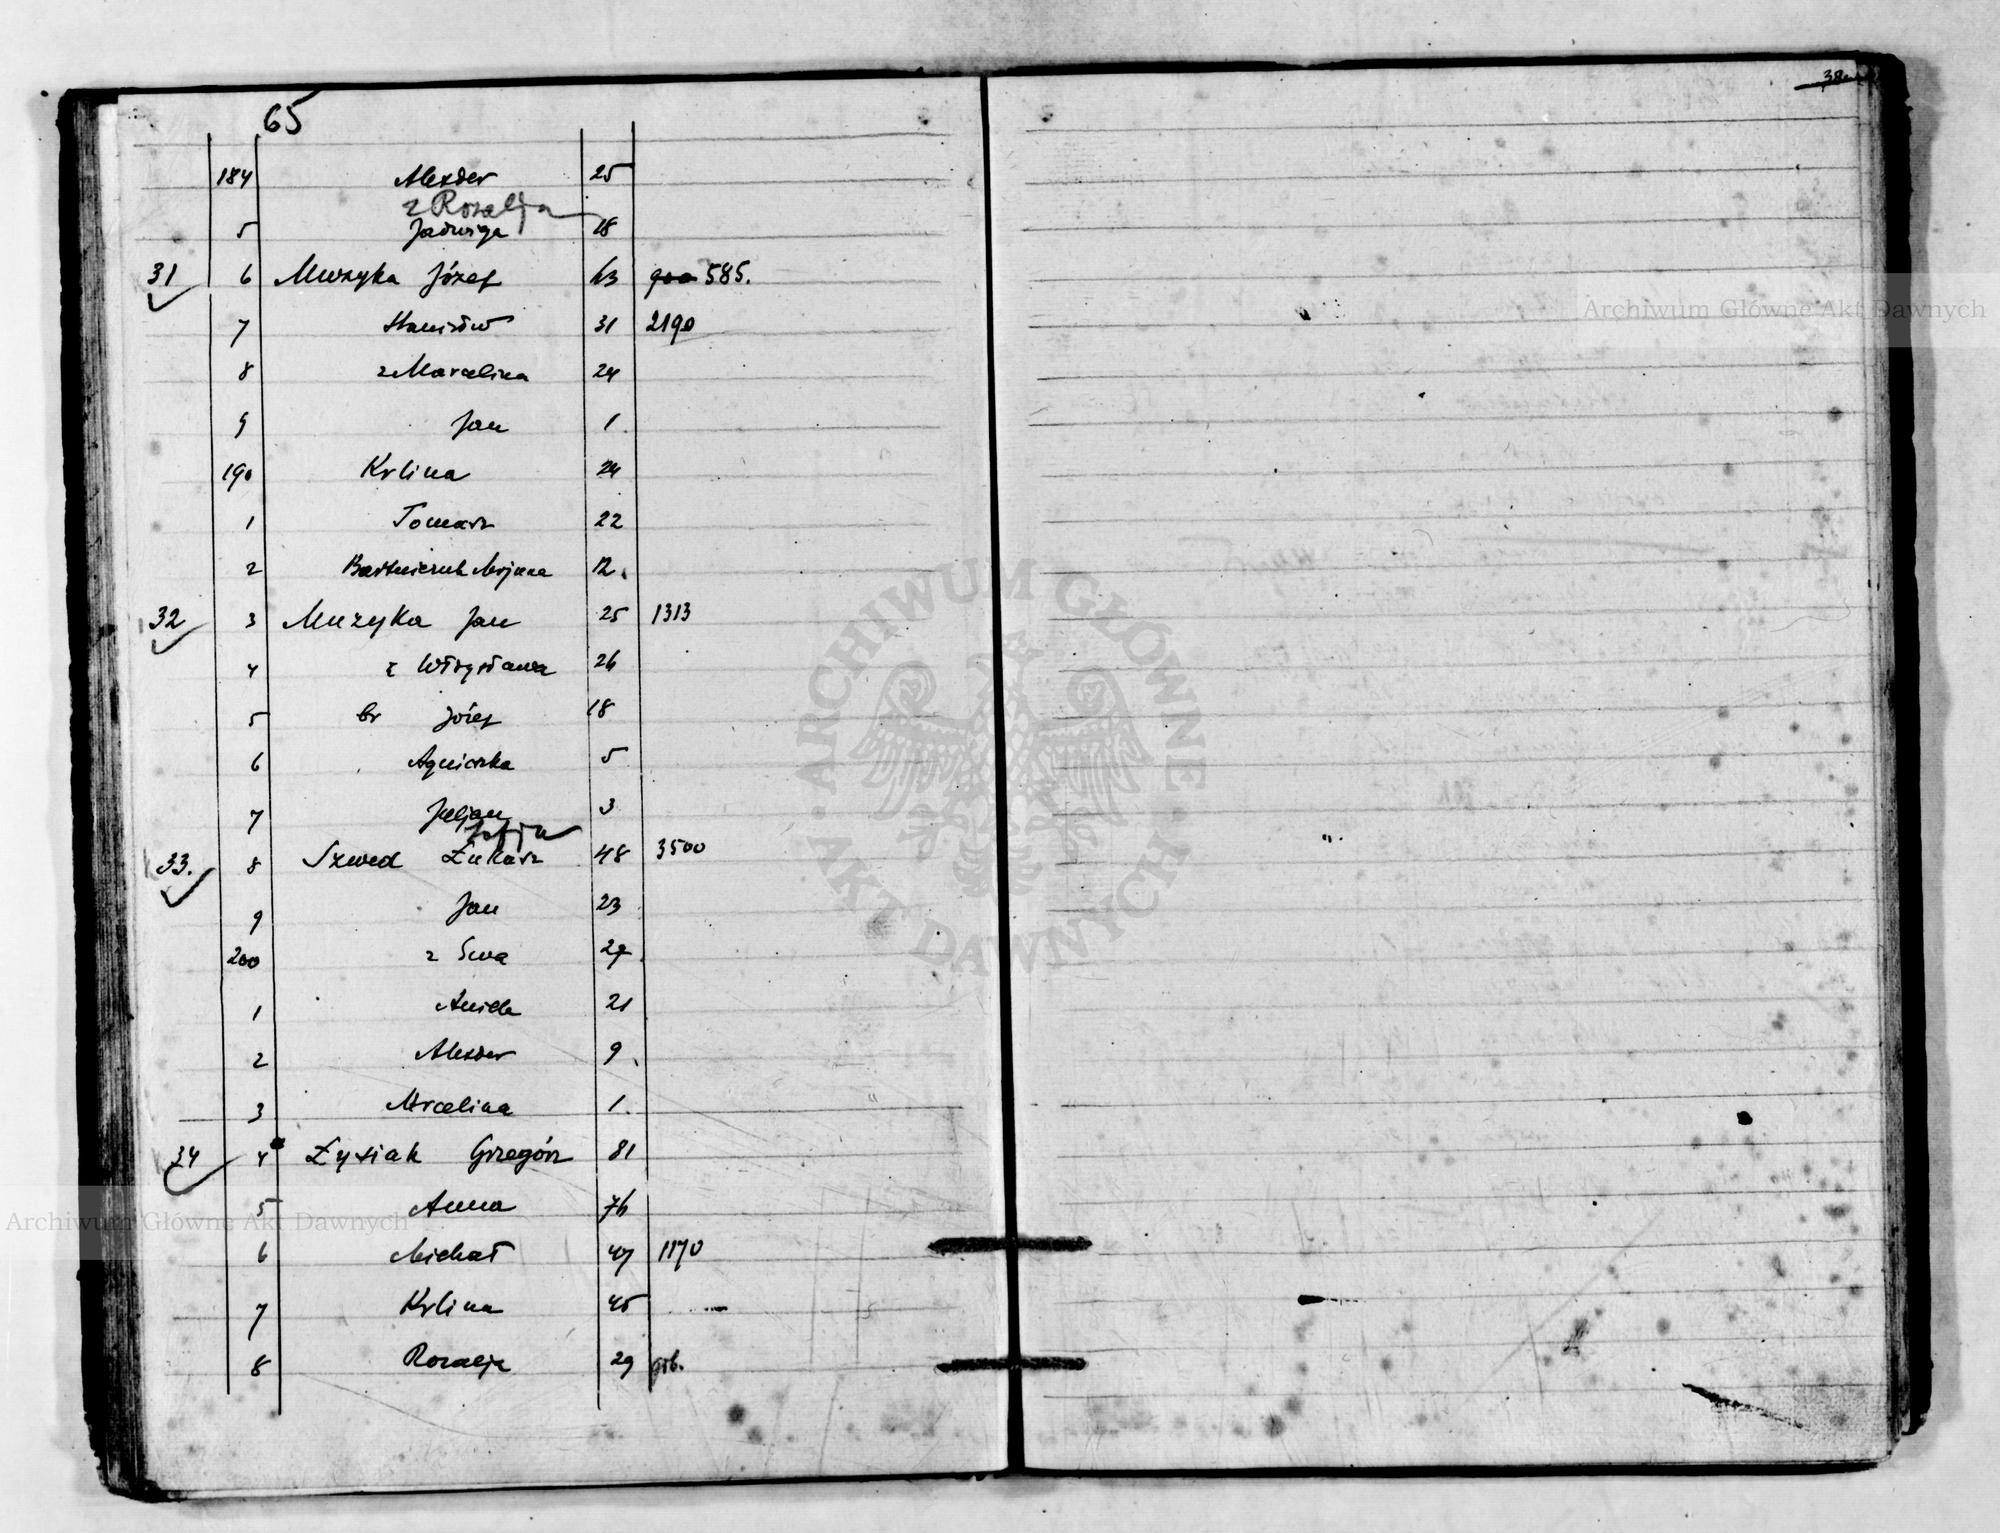 65
38
184 Alexder 25
z Rozalja
5 Jadwiga 18
31 6 Muzyka Józef 63 585.
7 Stanisław 31 2190
8 z Marcelina 24
9 Jan 1
190 Krlina 24
1 Tomasz 22
2 12
32 3 Muzyka Jan 25 1313
4 z Włdysława 26
5 br Józef 18
6 Agnieszka 5
7 Juljan 3
Zofja
33. 8 Szwed Łukasz 48 3500
9 Jan 23
200 z Ewa 27
1 Aniela 21
2 Alexder 9
3 Mrcelina 1
34 4 Łysiak Grzegórz 81
5 Anna 76
6 Michał 47 1170
7 Krlina 45
8 Rozalja 29
Archiwum Główne Akt Dawnych
Archiwum Główne Akt Dawnych
ARCHIWUM GŁÓWNE AKT DAWNYCH